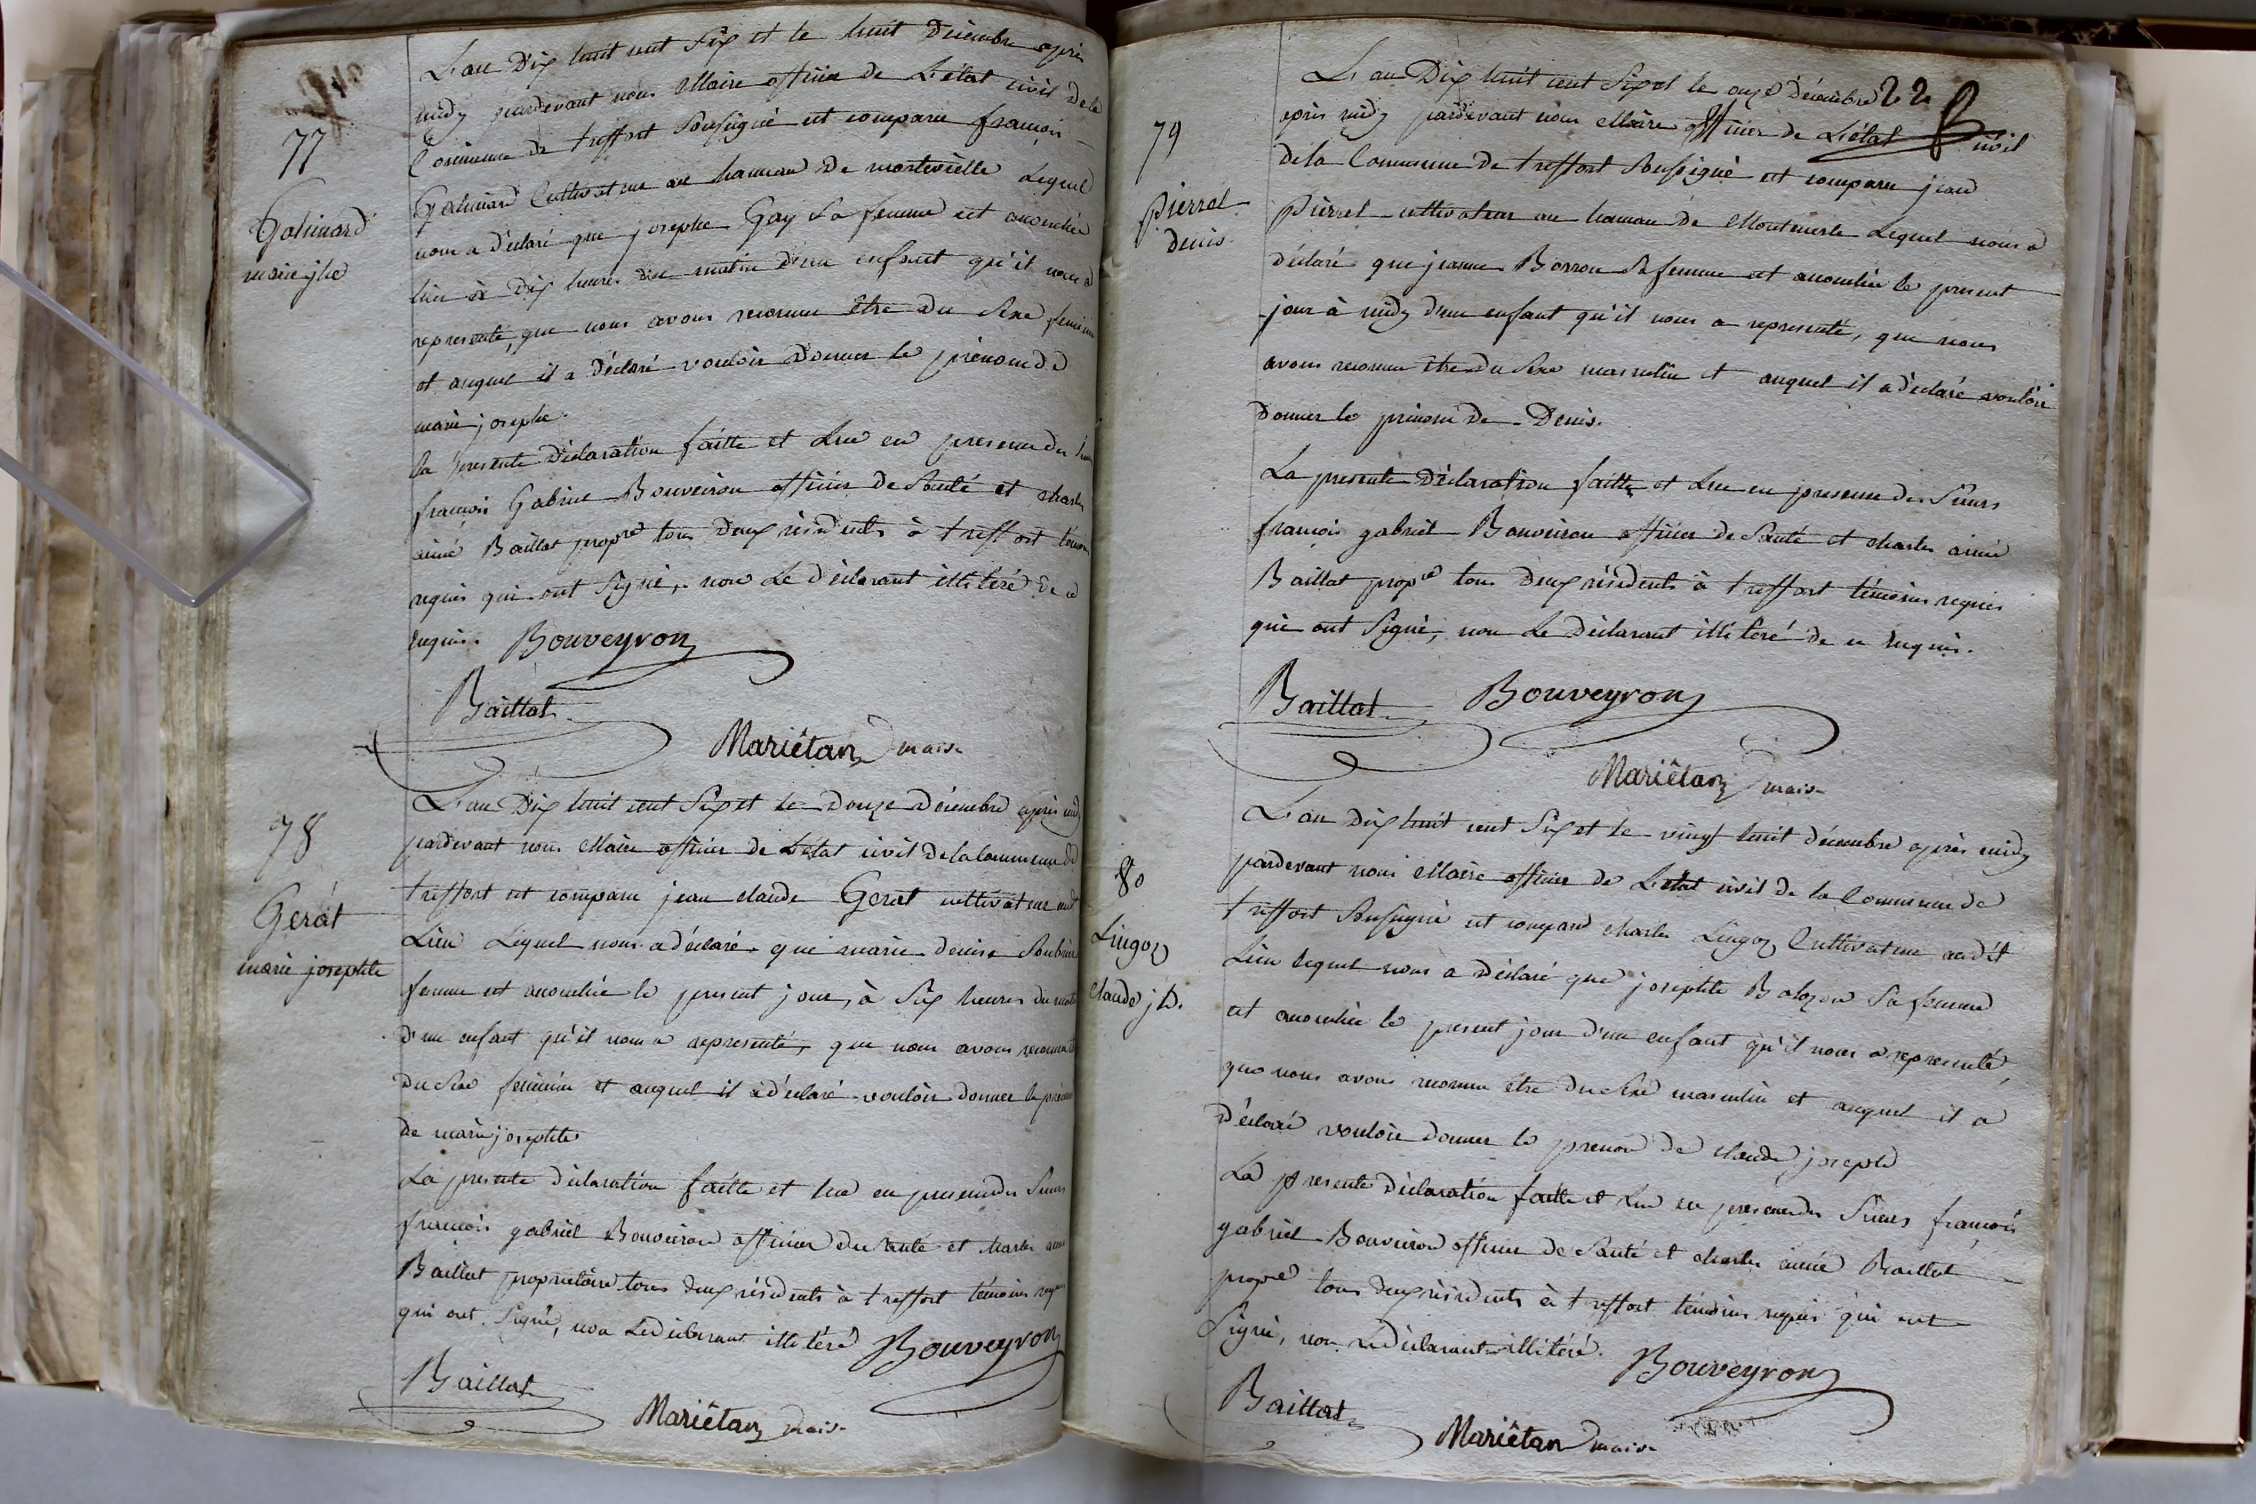 77
Galimard
marie jhe
L'an Dix huit cent Six et le huit Décembre après
midy pardevant nous Maire officier de L'état civil de la
Commune de treffort Soussigné est comparu françois
Galimard Cultivateur au hameau de montevielle Lequel
nous a déclaré que josephe Gay Sa femme est accouchée
hier à Dix heures du matin d'un enfant qu'il nous a
representé, que nous avons reconnu être du Sexe feminin
et auquel il a déclaré vouloir Donner le prénom de
marie josephe.
la presente Déclaration faitte et Lue en presence des
françois Gabriel Bouveiron officier de Santé et charles
aimé Baillat propre tous Deux résidents à treffort témoins
requis qui ont Signé, non Le déclarant illitéré De ce
Enquis. Bouveyron
Baillat
Mariétan maire
78
Gerat
marie josephte
L'an Dix huit cent Six et le Douze Décembre après midy
pardevant nous Maire officier de L'état civil de la Commune de
treffort est comparu jean claude Gerat cultivateur
Lieu Lequel nous a déclaré que marie denise
femme est accouchée le present jour, à Six heures du matin
d'un enfant qu'il nous a representé, que nous avons reconnu
du Sexe feminin et auquel il a déclaré vouloir donner le prénom
de marie josephte
La presente déclaration faitte et lue en presence des Sieurs
françois gabriel Bouveiron officier de santé et charles aimé
Baillat proprietaire tous deux résidents à treffort témoins requis
qui ont Signé, non Le déclarant illitéré Bouveyron
Baillat
Mariétan maire
22
79
Pierrel
Denis
L'an Dix huit cent Six et le onze décembre
après midy pardevant nous Maire officier de L'état civil
de la Commune de treffort Soussigné est comparu jean
Pierrel cultivateur au hameau de Montmerle Lequel nous a
déclaré que jeanne Borron Sa femme est accouchée le present
jour à midy d'un enfant qu'il nous a representé, que nous
avons reconnu être du Sexe masculin et auquel il a déclaré vouloir
Donner le prénom de Denis.
La presente Déclaration faitte et Lue en presence des Sieurs
françois gabriel Bouveiron officier de Santé et charles aimé
Baillat propre tous Deux résidents à treffort témoins requis
qui ont Signé, non Le Déclarant illitéré de ce Enquis.
Baillat Bouveyron
Mariétan maire
80
Lingoz
Claude jh.
L'an Dix huit cent Six et le vingt huit décembre après midy
pardevant nous Maire officier de L'état civil de la Commune de
treffort Soussigné est comparu charles Lingoz Cultivateur audit
Lieu lequel nous a Déclaré que josephte Balozon Sa femme
est accouchée le present jour d'un enfant qu'il nous a representé,
que nous avons reconnu être du Sexe masculin et auquel il a
Déclaré vouloir donner le prenom de claude joseph
La presente Déclaration faitte et Lue en presence des Sieurs françois
gabriel Bouveiron officier de Santé et charles aimée Baillat
propre tous deux résidents à treffort témoins requis qui ont
Signé, non Le Déclarant illitéré. Bouveyron
Baillat
Mariétan maire